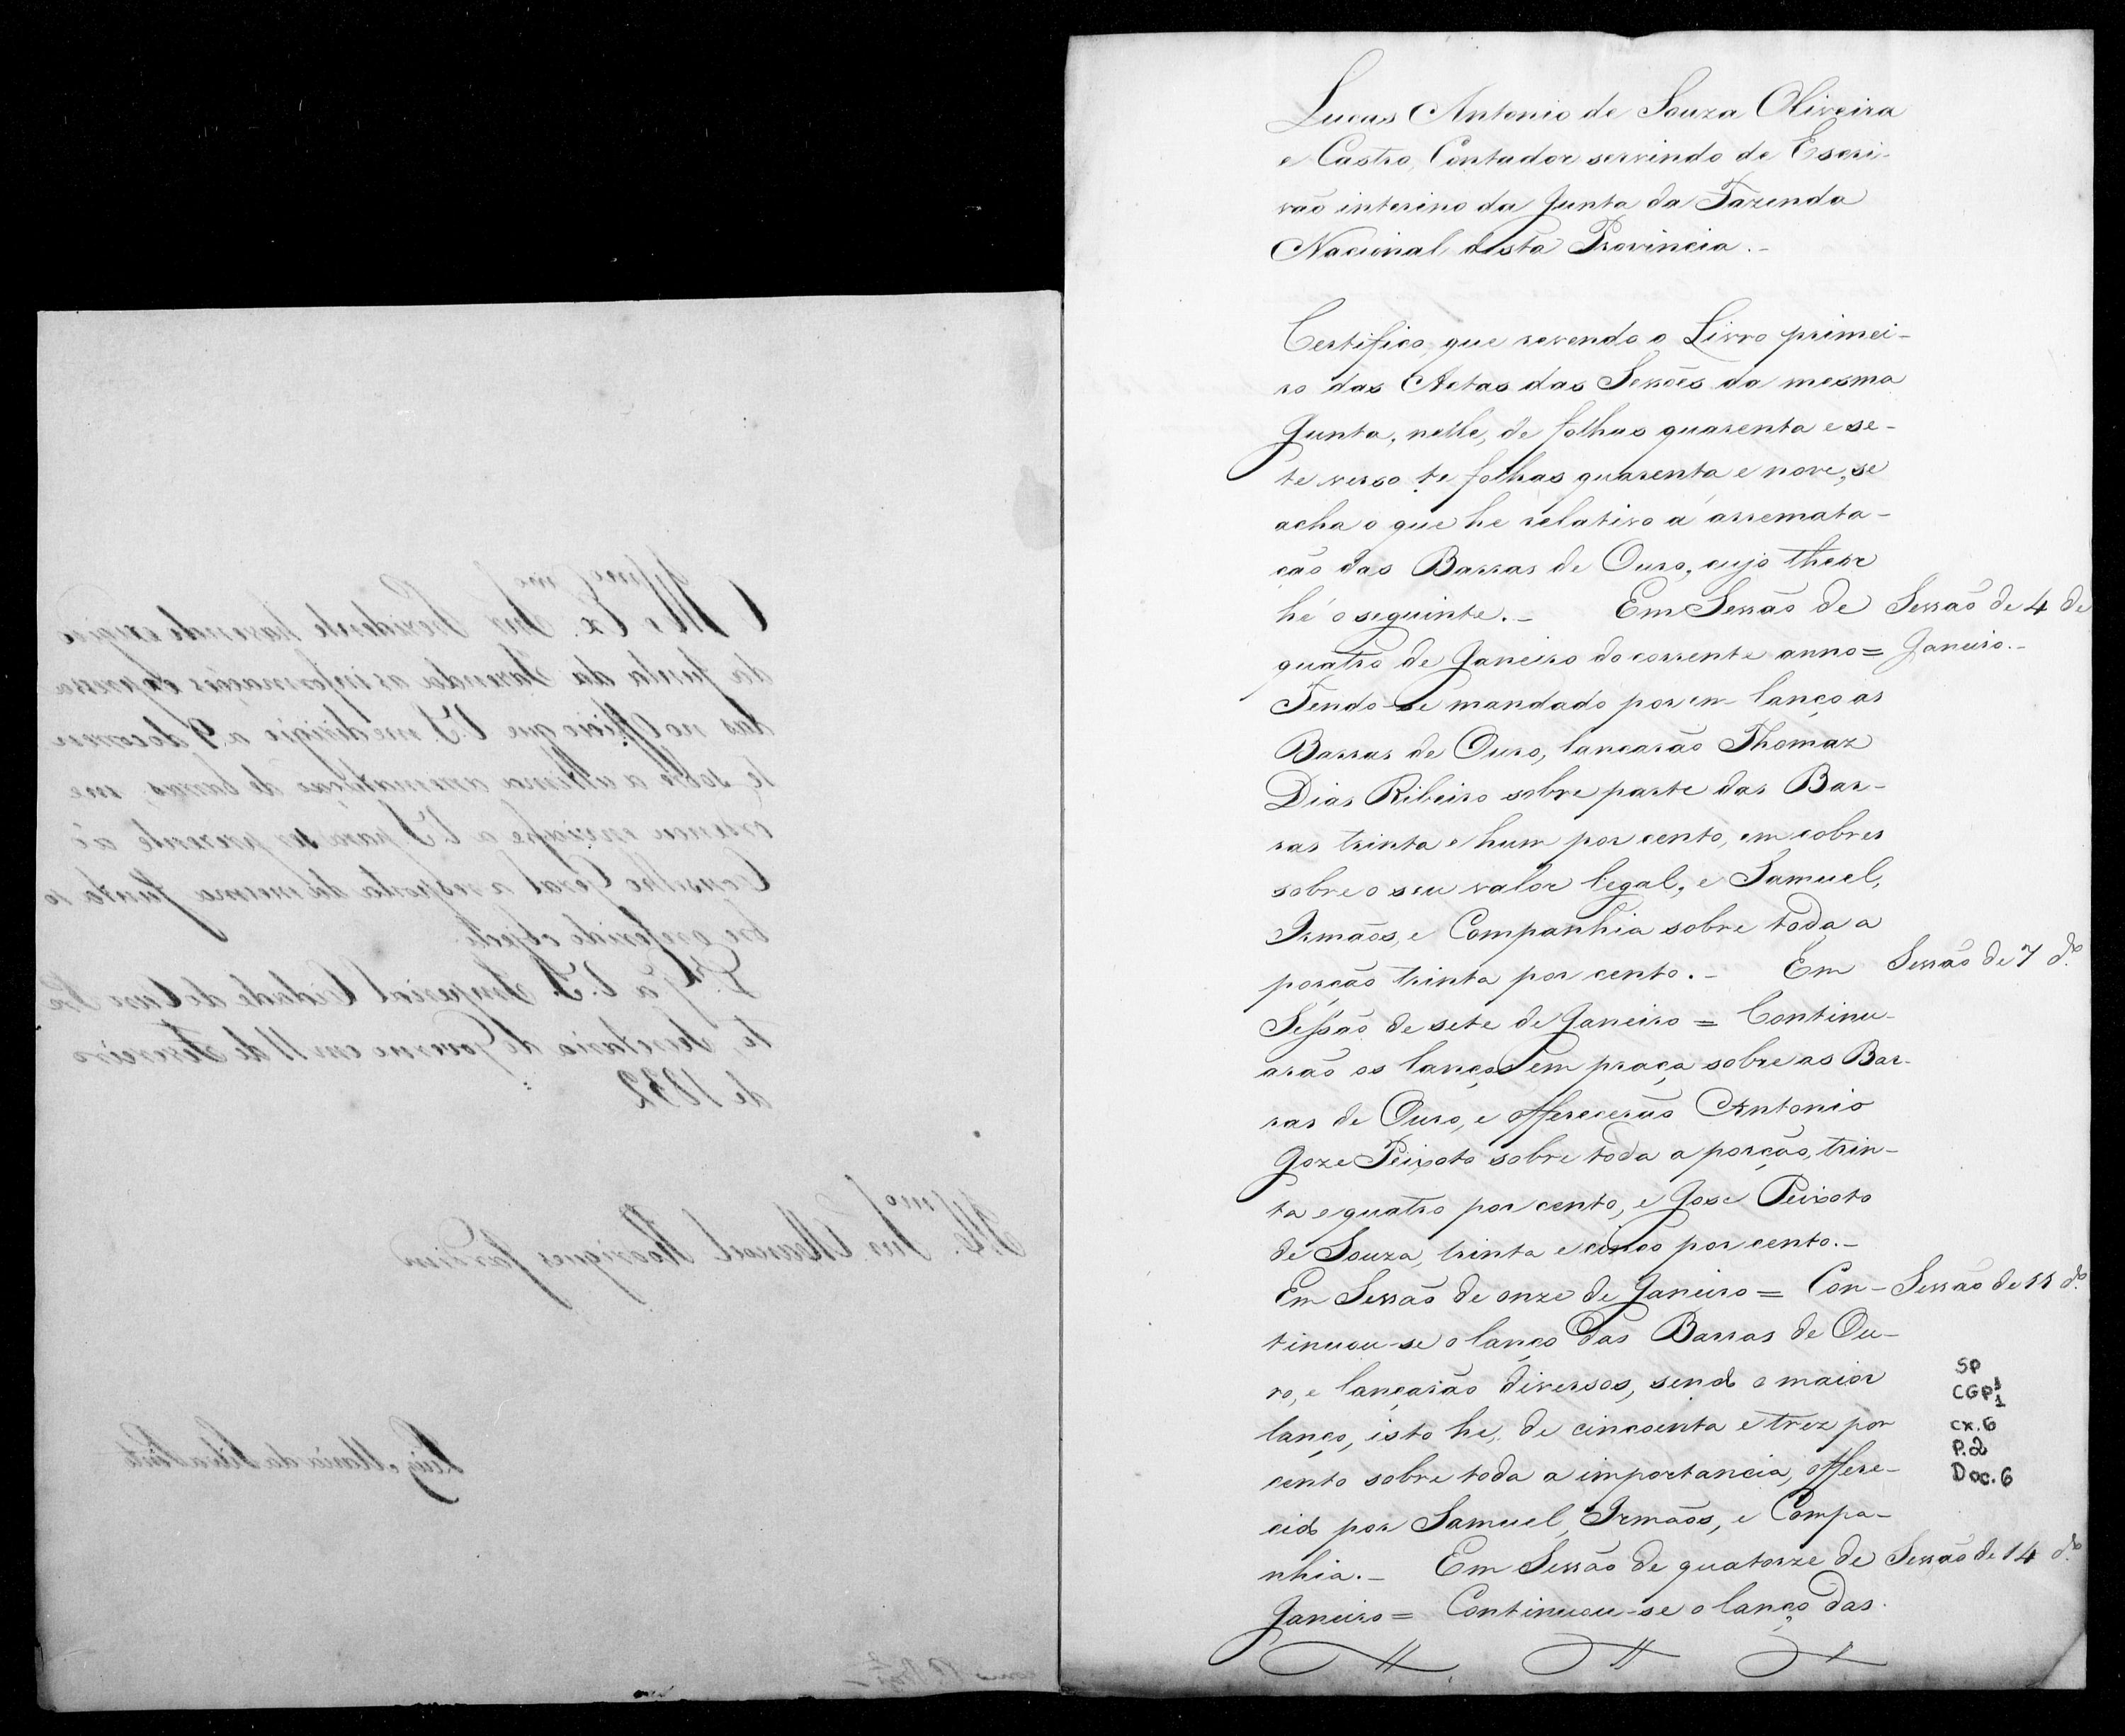 Lucas Antonio de Souza Oliveira
e Castro, Contador servindo de Escri-
vão interino da Junta da Fazenda
Nacional desta Provincia.-
Certifico, que revendo o Livro primei-
ro das Actas das Sessões da mesma
Junta, nelle, de folhas quarenta e se-
te verso te folhas quarenta e nove, se
acha o que he relativo á arremata-
ção das Barras de Ouro, cujo theor
hé o seguinte.- Em Sessão de
Sessão de 4 de
quatro de Janeiro do corrente anno=
Janeiro.-
Tendo-se mandado por em lanço as
Barras de Ouro, lancarão Thomaz
Dias Ribeiro sobre parte das Bar-
ras trinta e hum por cento, em cobres
sobre o seu valor legal, e Samuel,
Irmãos, e Companhia sobre toda a
porção trinta por cento.- Em
Sessão de 7 dº
Sessão de sete de Janeiro = Continu-
arão os lanços em praça sobre as Bar-
ras de Ouro, e offerecerão Antonio
Joze Peixoto sobre toda a porção, trin-
ta e quatro por cento, e Jose Peixoto
de Souza, trinta e cinco por cento.-
Em Sessão de onze de Janeiro = Con-
Sessão de 11 dº
tinuou-se o lanço das Barras de Ou-
ro, e lançarão diversos, sendo o maior
lanço, isto he, de cincoenta e trez por
cento sobre toda a importancia, offere-
cido por Samuel, Irmãos, e Compa-
nhia.- Em Sessão de quatorze de
Sessão de 14 dº
Janeiro = Continuou-se o lanço das
SP
CGP1
1
cx.6
P.2
Doc.6
O Illmo e Exmo Snr Presidente fazendo exigir
da Junta da Fazenda as informações expressa
das no Officio que V.S. me dirigio a 9 do corren
te sobre a ultima arrematação de barras, me
ordenou enviasse a V.S. para ser presente ao
Conselho Geral a resposta da mesma Junta so
bre o referido objecto.
D.s G. a V.S. Imperial Cidade do Ouro Pre
to, Secretaria do Governo em 11 de Fevereiro
de 1832
Illmo Snr. Manoel Rodrigues Jardim
Luiz Maria da Silva Pinto